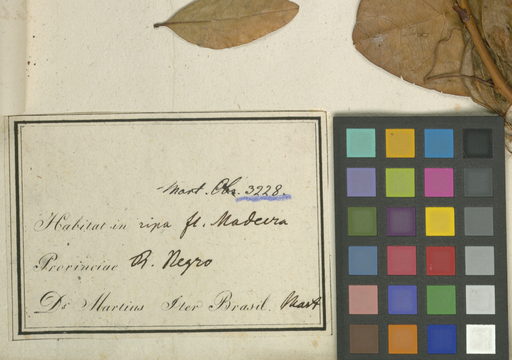 Mart. Obs. 3228.
Habitat in ripa fl. Madeira
Provinciae R. Negro
Dr Martius Iter Brasil. Mart